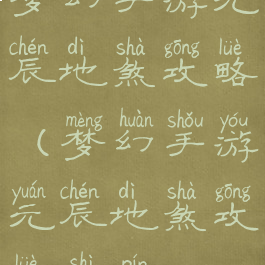 梦幻手游元
chén dì shà gōng lüè
辰地煞攻略
mèng huàn shǒu yóu
（梦幻手游
yuán chén dì shà gōng
元辰地煞攻
lüè shì pín